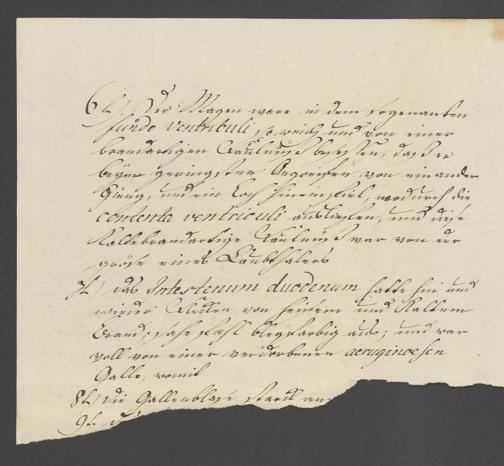 6t.) Der Magen ware in dem sogenanten
fundo ventriculi, so weich und von einer
brandartigen Fäulnuß besessen, daß er
beym geringsten Angreifen von einander
gieng, und ein Loch hineinfiel, wodurch die
contenta ventriculi ausliefen, und diese
Kaltebrandartige Fäulnuß war von der
größe eines Laubthalers
7t.) das Intestenum duodenum hatte hin und
wieder Flecken von heißem und Kaltem
Brand, sahe sehr bleyfarbig aus; und war
voll von einer verdorbenen aeruginoesen
Galle, womit
8t.) die Gallenblase starck an
9t.